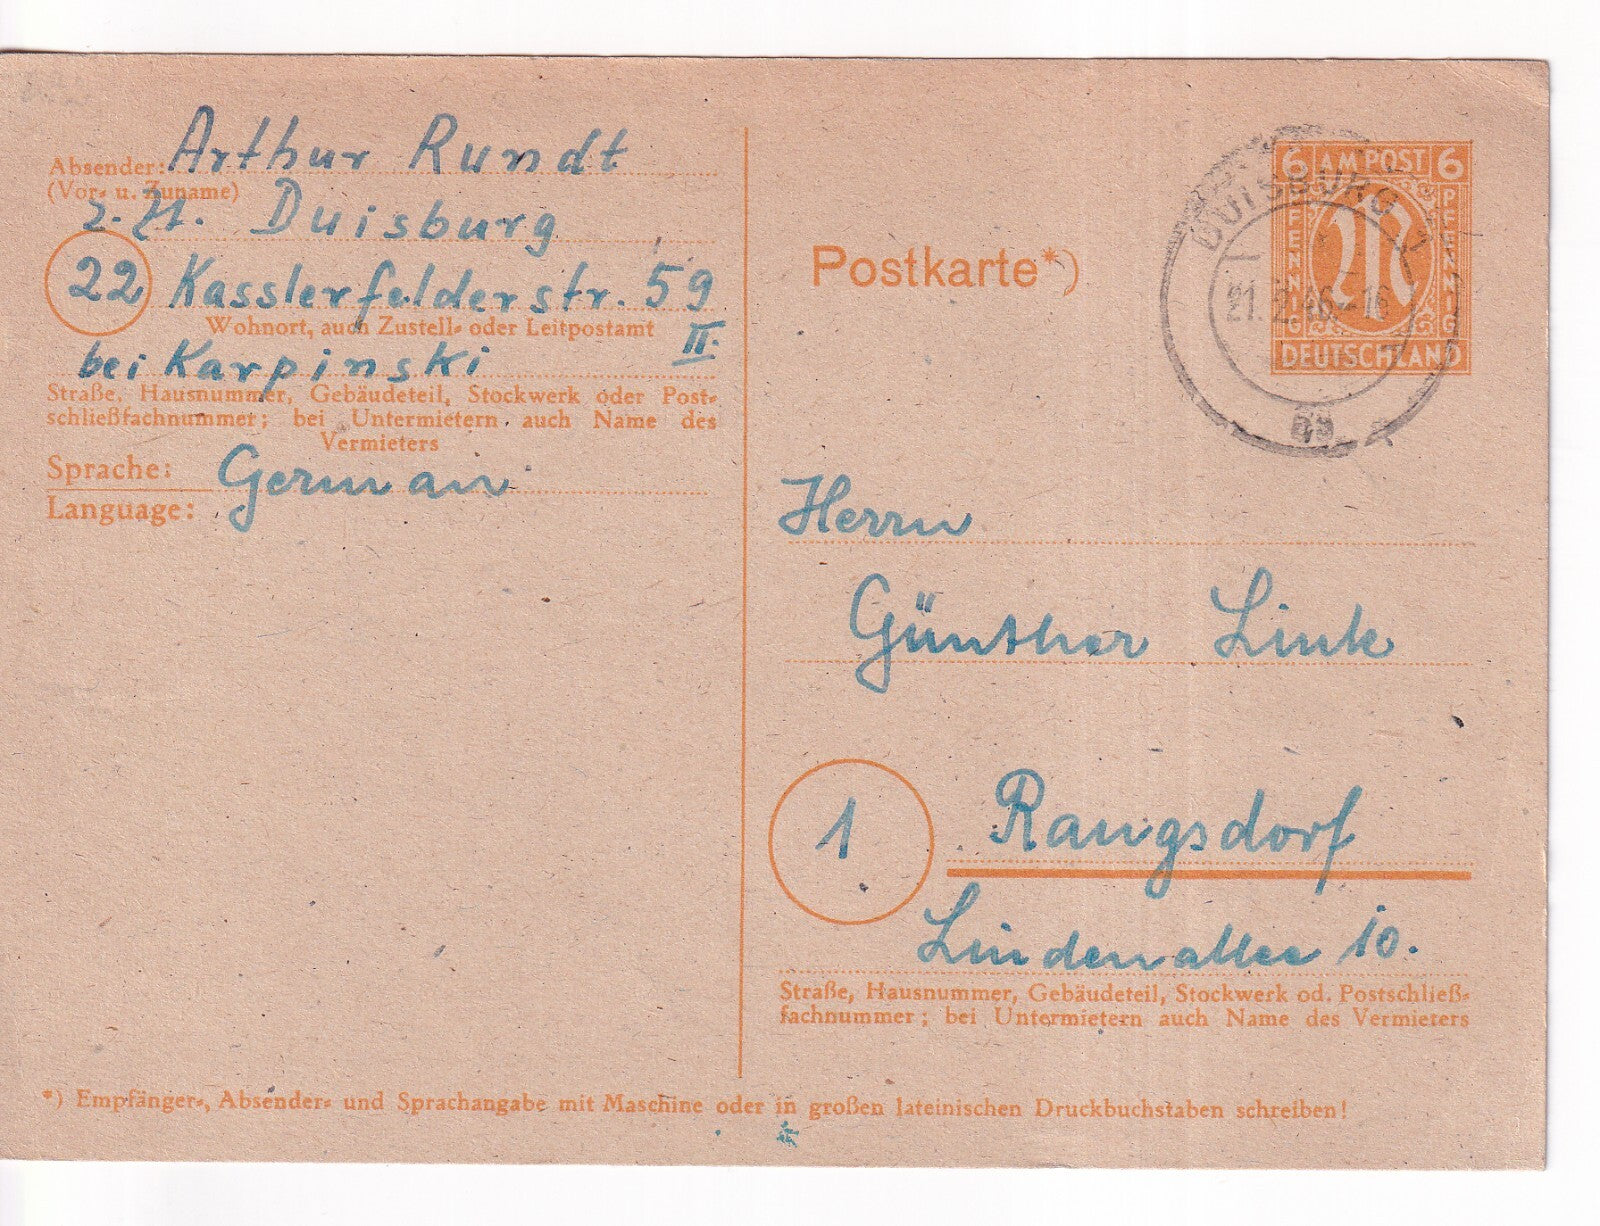 Absender: Arthur Rundt
(Vor- u. Zuname)
z. Zt. Duisburg
22 Kasslerfelderstr. 59
Wohnort, auch Zustell- oder Leitpostamt
II.
bei Karpinski
Straße, Hausnummer, Gebäudeteil, Stockwerk oder Post-
schließfachnummer; bei Untermietern auch Name des
Vermieters
Sprache: German
Language:
Postkarte*)
6 AM POST 6
PFENNIG PFENNIG
M
DEUTSCHLAND
DUISBURG 1
21.2.46-16
Herrn
Günther Link
1 Rangsdorf
Lindenallee 10.
Straße, Hausnummer, Gebäudeteil, Stockwerk od. Postschließ-
fachnummer; bei Untermietern auch Name des Vermieters
*) Empfänger-, Absender- und Sprachangabe mit Maschine oder in großen lateinischen Druckbuchstaben schreiben!